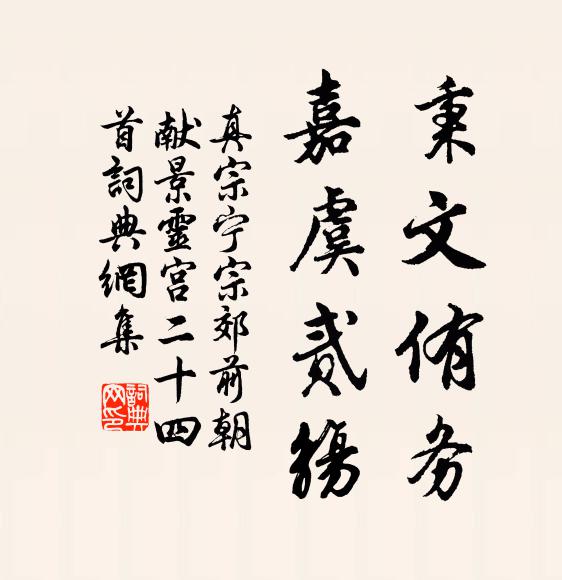 秉文侑务
嘉虞貳觴
真宗宁宗郊前朝
献景靈宫二十四
首詞典網集
詞典
网印